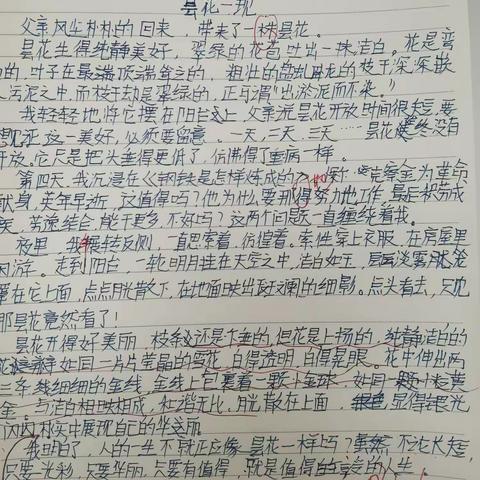 昙花一现
父亲风尘朴朴的回来，带来了一株昙花。
昙花生得纯静美好，翠绿的花苞吐出一抹洁白。花是弯
的，叶子在最满
粗壮的盘虬卧龙的枝干深深嵌
污泥之中，而枝干却是翠绿的，正可谓"出淤泥而不
我轻轻地将它摆在阳台上，父亲说昙花开放时间很短，要
现这一美好，必须要留意。一天，二天，三天……昙花始终没有
开放，它只是把头垂得更低了，仿佛得了重病一样。
第四天，我沉浸在《钢铁是怎样炼成的》
为革命
献身，英年早逝，这值得吗？他为什么要那得努力地工作，最后积劳成
疾，劳逸结合，能干更多，不好吗？这两个问题一直缠绕着我。
夜里，我辗转反侧，一直思索着，彷徨着。索性穿上衣服，在房屋里
游。走到阳台，一轮明月挂在天空之中，洁白如玉，层层淡雾
罩在它上面，点点月光散下，在地面映出斑斓的细影。点头看去，只见
那昙花竟然看了！
昙花开得好美丽，枝条还是下垂的，但花是上扬的，纯静洁白的
花如同一片片莹晶的雪花，白得透明，白得晃眼。花中伸出两
三条线细细的金线，金线上包裹着一颗小金球，如同一颗小粒黄
金。与洁白相映相成，和谐无比，月光散在上面，显得银光
闪闪，朴实中展现自己的华丽。
我明白了，人的一生不就正应像昙花一样吗？虽然不论长短，
只要光彩，只要华丽，只要有值得，就是值得的人生。